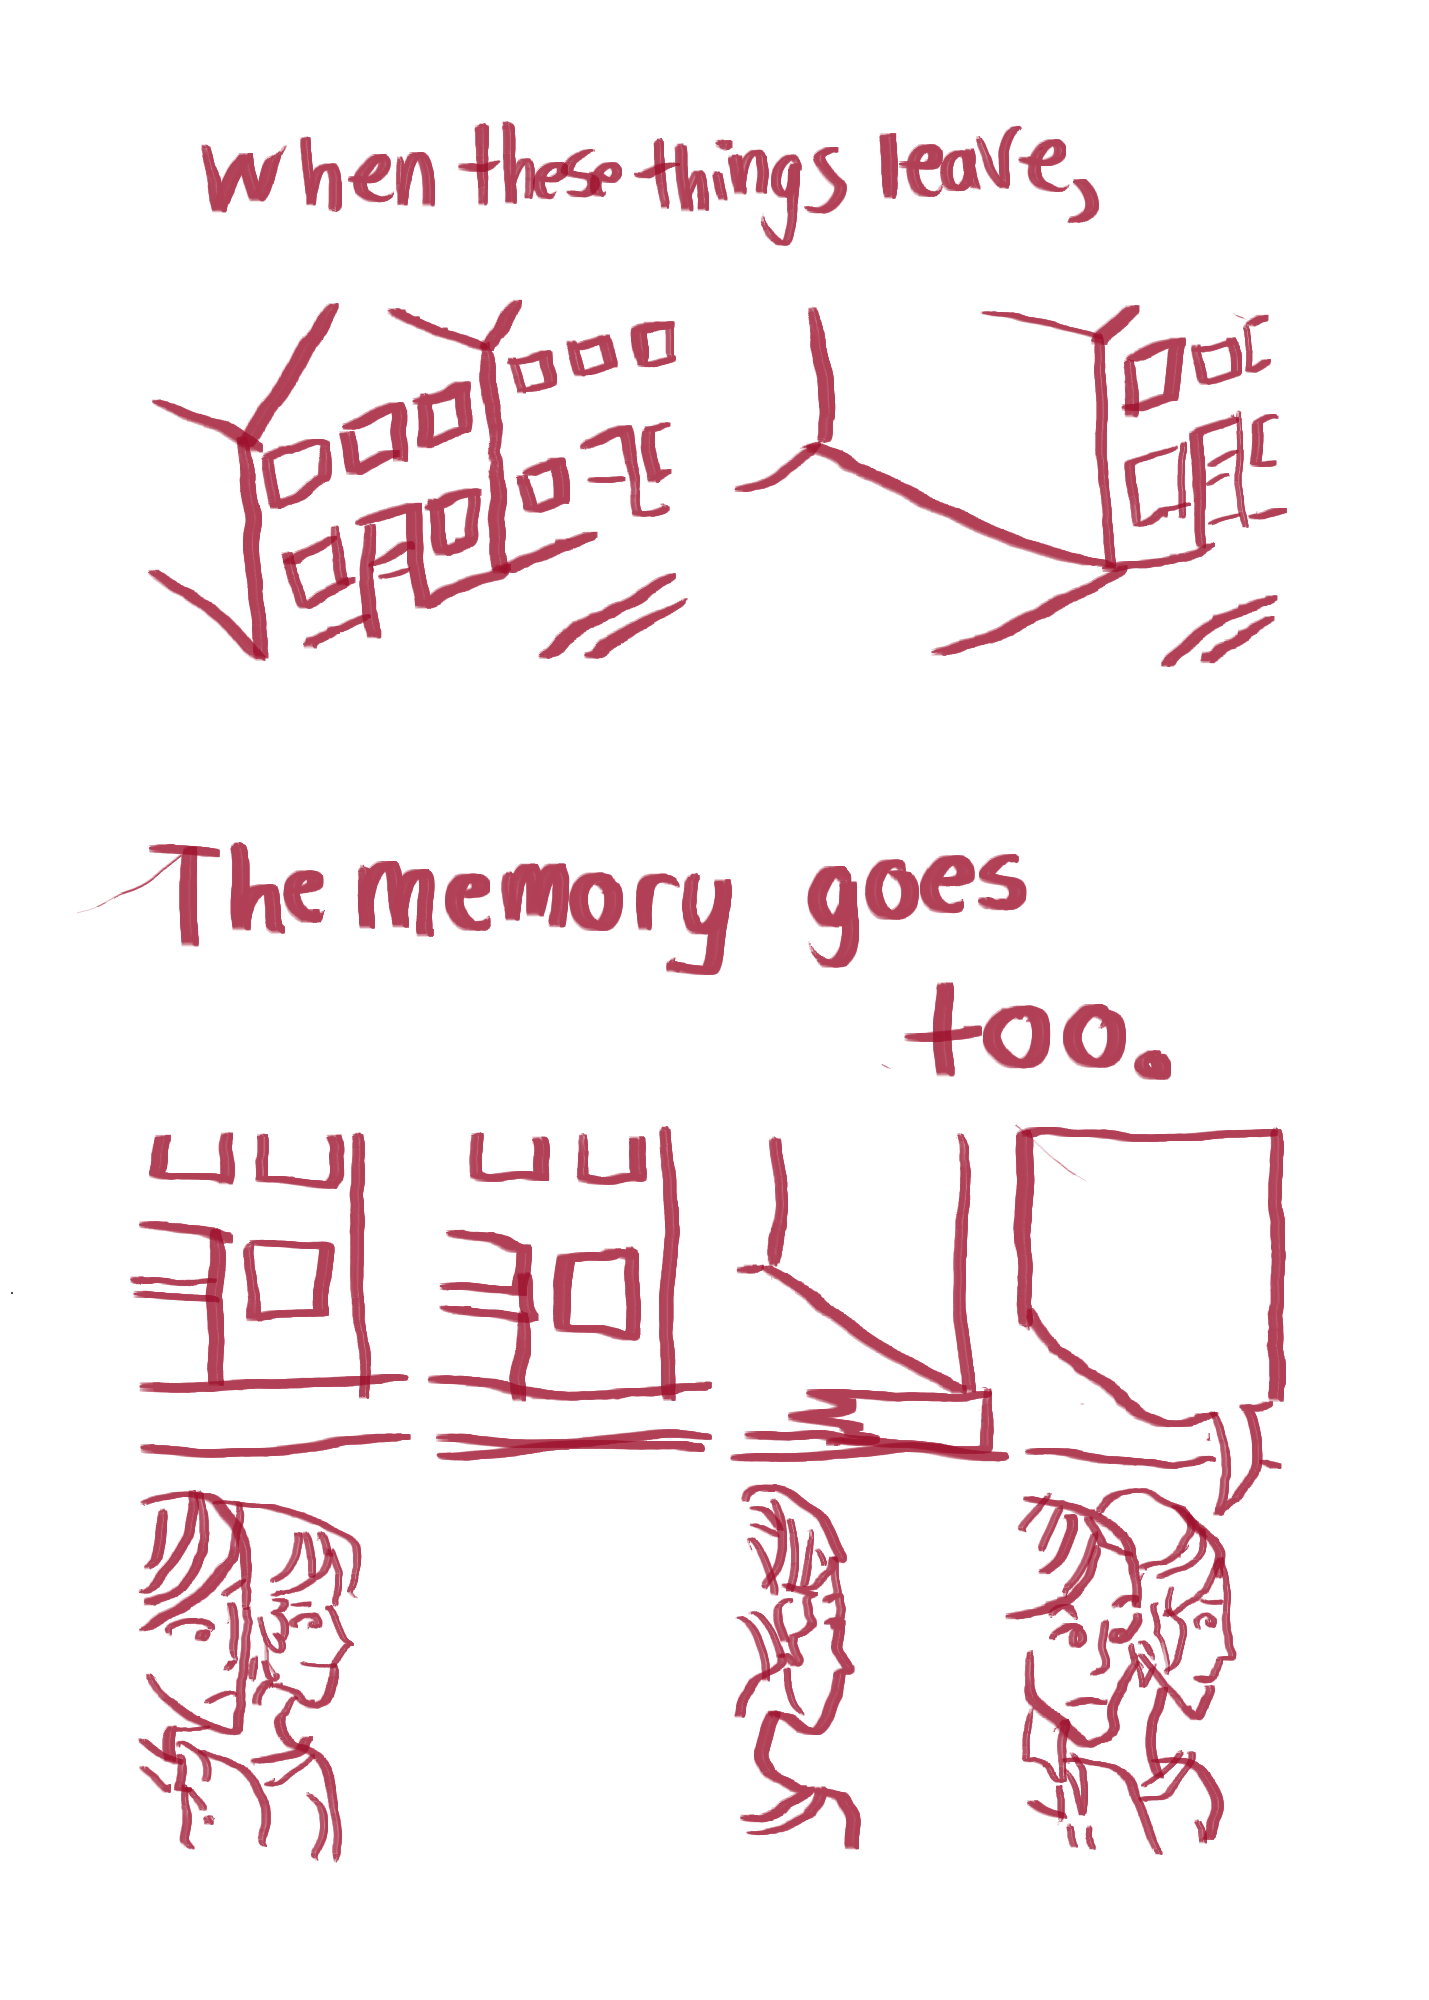 when these things leave,
The memory goes
too.